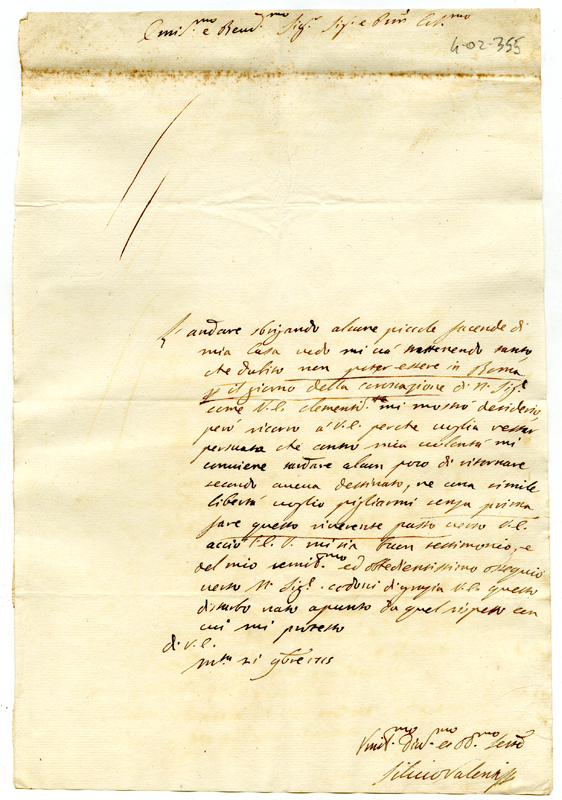 Emin.mo e Rend.mo Sig.r Sig. e Pron Col.mo
4-02-355
L'andare sbrigando alcune piccole facende di
mia Casa vedo mi và trattenendo tanto
che dubito non poter essere in Roma
p il giorno della coronazione di N. Sig.e
come V.E. clementi.te mi mostrò desiderio,
però ricorro à V.E. perche voglia restar
persuasa che contro mia volontà mi
conviene tardare alcun poco di ritornare
secondo aveva destinato, ne una simile
libertà voglio pigliarmi senza prima
fare questo riverente passo verso V.E.
acciò l'E.V. mi sia buon testimonio, e
del mio umil.mo ed obbedientissimo ossequio
verso N. Sig.e condoni di grazia V.E. questo
disturbo nato apunto da quel rispetto con
cui mi protesto
di V.E.
9bre
Umil.mo Div.mo ed Ob.mo Serv
Silvio Valenti